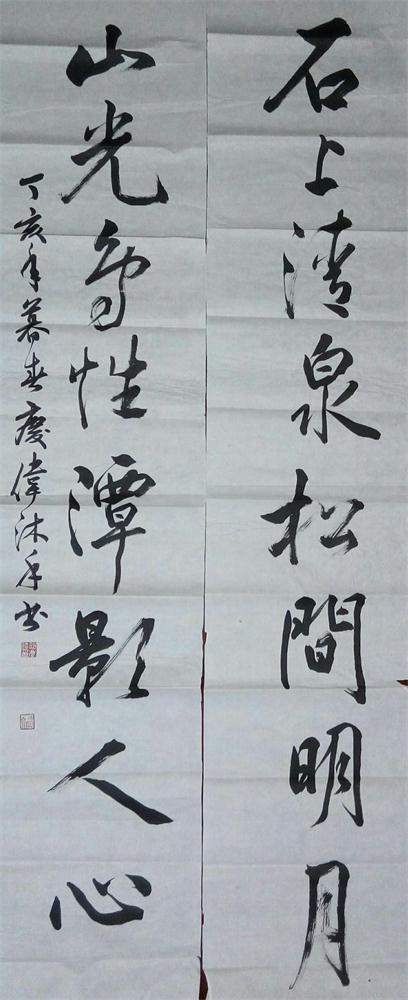 石上清泉松間明月
山光鸟性潭影人心
丁亥年暮春慶偉沐手书